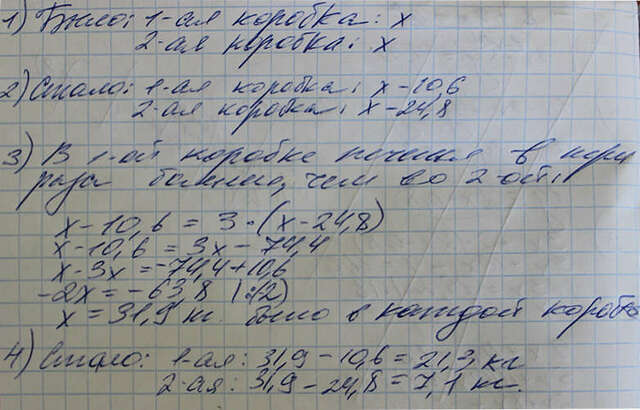 1) Было: 1-ая коробка: x
2-ая коробка: x
2) Стало: 1-ая коробка: x-10,6
2-ая коробка: x-24,8
3) В 1-ой коробке печенья в три
раза больше, чем во 2-ой:
x-10,6 = 3·(x-24,8)
x-10,6 = 3x-74,4
x-3x = -74,4+10,6
-2x = -63,8 |:(-2)
x = 31,9 кг. было в каждой коробке
4) Стало: 1-ая: 31,9-10,6 = 21,3 кг
2-ая: 31,9-24,8 = 7,1 кг.